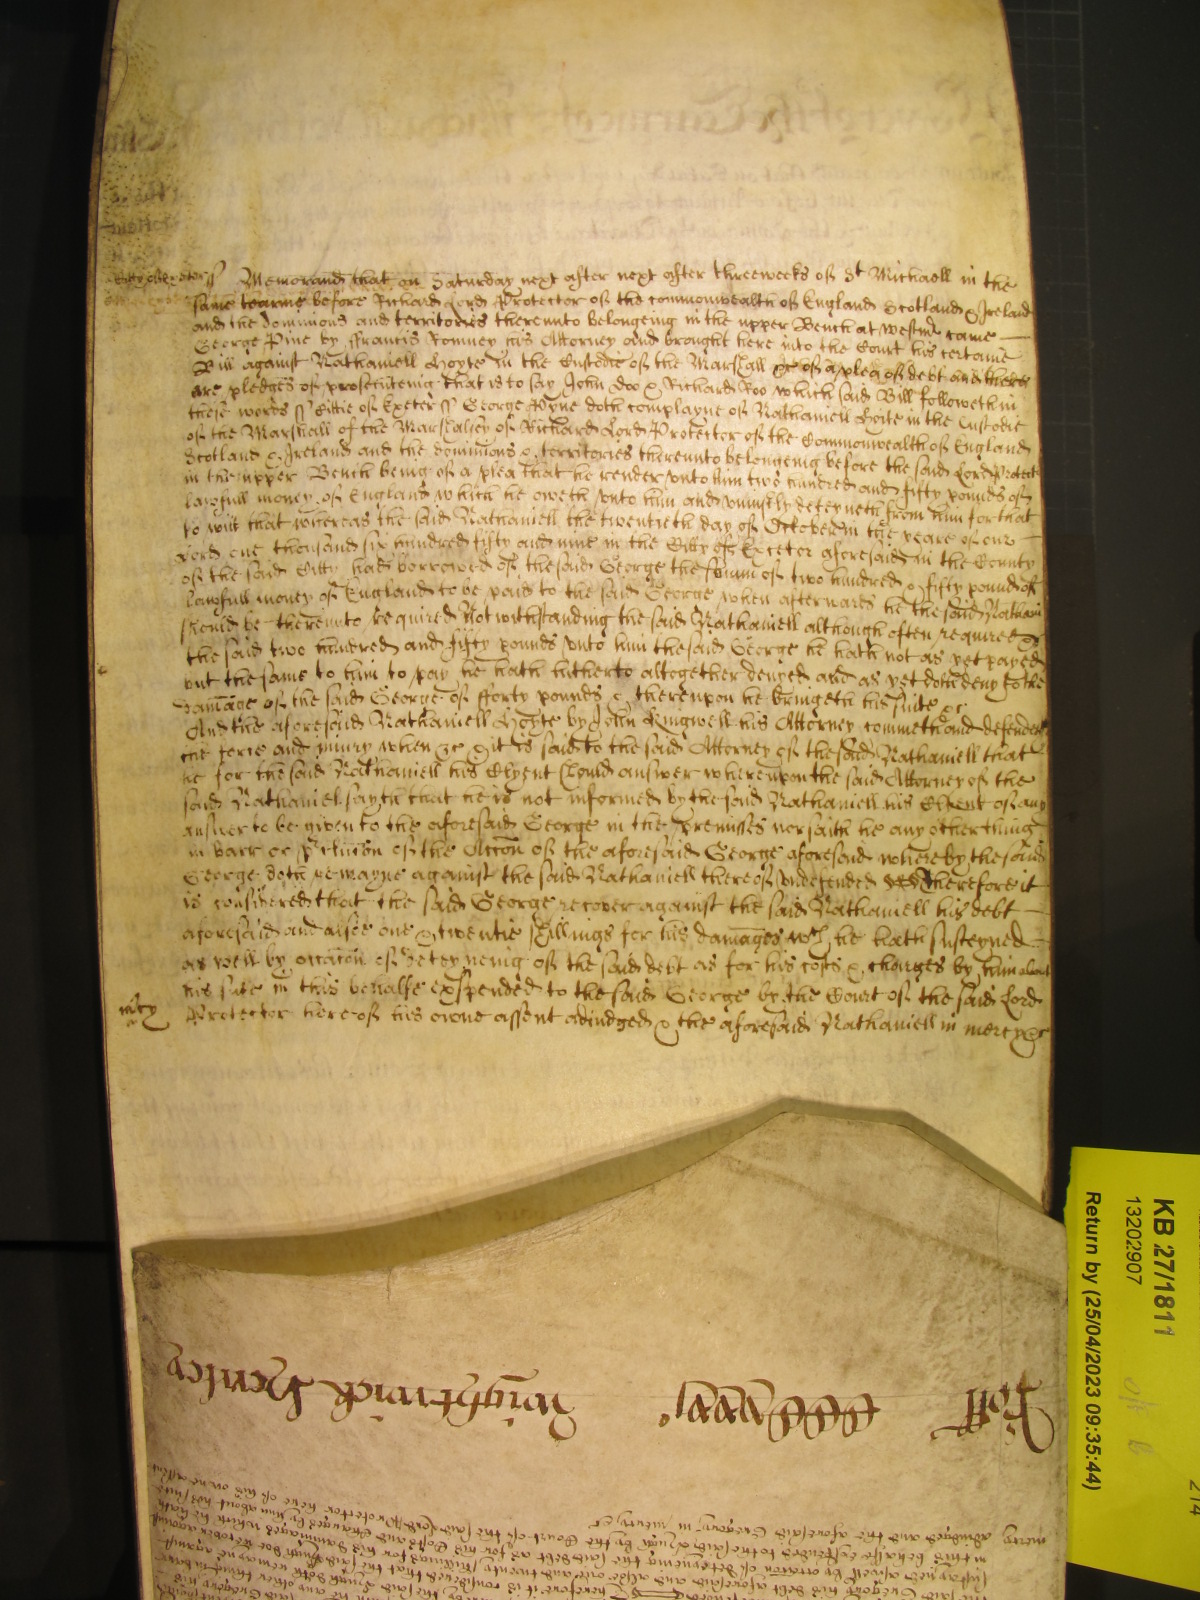 Citty of Exeter ss Memorand that on Saturday next after next after threeweekes of St Michaell in the
same tearme before Richard Lord Protector of the commonwealth of England Scotland & Ireland
and the dominions and territories thereunto belongeing in the upper Bench at Westmr came
George Pine by ffrancis Romney his Attorney and brought here into the Court his certaine
Bill against Nathaniell Hoyte in the Custodie of the Marshall &c of a plea of debt and there
are pledges of prosecuteing that is to say John Doo & Richard Roo which said Bill followeth in
these words ss Cittie of Exeter ss George Pyne doth complayne of Nathaniell Hoite in the Custodie
of the Marshall of the Marshalsey of Richard Lord Protector of the Commonwealth of England
Scotland & Ireland and the dominions & territories thereunto belongeing before the said Lord Protector
in the upper Bench being of a plea that he render unto him two hundred and fifty pounds of
lawfull money of England which he oweth unto him and uniustly deteyneth from him for that
to witt that whereas the said Nathaniell the twentieth day of October in the yeare of our
Lord one thousand six hundred fifty and nine in the Citty of Exceter aforesaid in the County
of the said Citty had borrowed of the said George the summ of two hundred & fifty pounds of
lawfull money of England to be paid to the said George when afterwards he the said Nathani
should be thereunto required Notwithstanding the said Nathaniell although often required &c
the said two hundred and fifty pounds unto him the said George he hath not as yet payed
but the same to him to pay he hath hitherto altogether denyed and as yet doth deny to the
damage of the said George of fforty pounds & thereupon he bringeth his suite &c
And the aforesaid Nathaniell Hoyte by John Ringwell his Attorney commeth and defendeth
the force and iniury when &c & it is said to the said Attorney of the said Nathaniell that
he for the said Nathaniell his Clyent should answer whereupon the said Attorney of the
said Nathaniel sayth that he is not informed by the said Nathaniell his Clyent of any
answer to be given to the aforesaid George in the premisses nor saith he any other thing
in barr or p'clucon of the Accon of the aforesaid George aforesaid whereby the said
George doth remayne against the said Nathaniell thereof undefended therefore it
is considered that the said George recover against the said Nathaniell his debt
aforesaid and alsoe one & twentie shillings for his damages wch he hath susteyned
as well by occacon of deteyneing of the said debt as for his costs & charges by him about
his suite in this behalfe expended to the said George by the Court of the said Lord
mcy Protector here of his owne assent adiudged & the aforesaid Nathaniell in mercy &c
KB 27/1811
13202907
Return by (25/04/2023 09:35:44)
214
Wightwick Henley
Ross